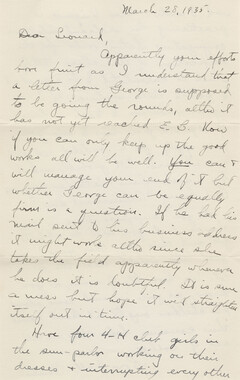 March 28, 1935.
Dear Leonard,
Apparently your efforts
bore fruit as I understand that
a letter from George is supposed
to be going the rounds, altho it
has not yet reached E. B. Now
if you can only keep up the good
works all will be well. You can &
will manage your end of it but
whether George can be equally
firm is a question. If he has his
mail sent to his business address
it might work altho since she
takes the field apparently whenever
he does it is doubtful. It is sure
a mess but hope it will straighten
itself out in time.
Have four 4-H club girls in
the sun-parlor working on their
dresses & interrupting every other